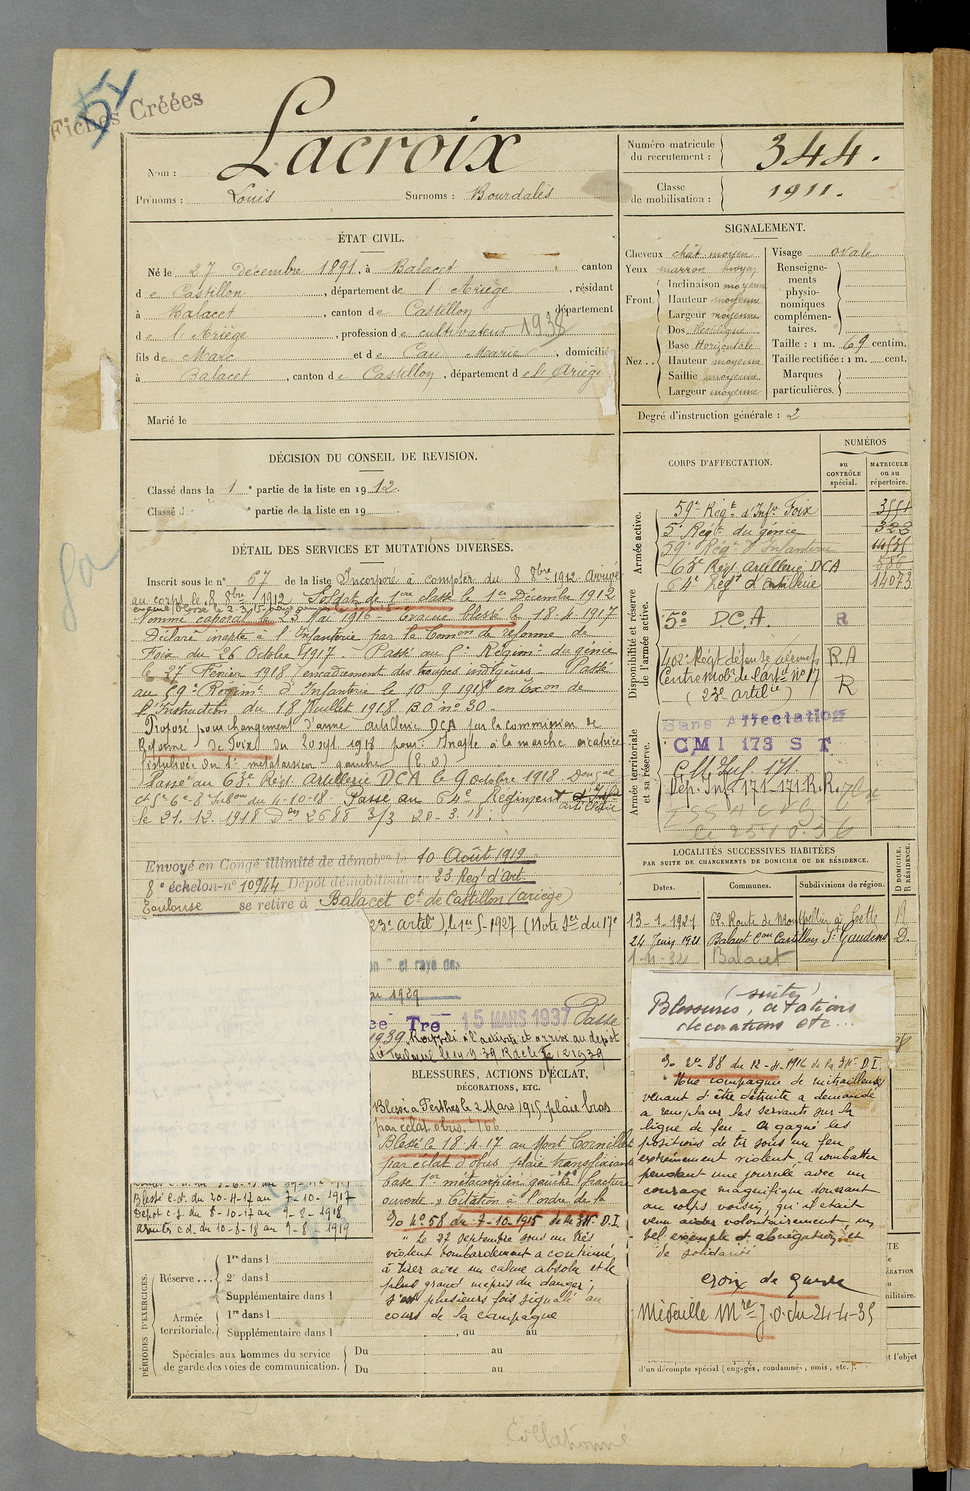 Fiches Créées
Nom : Lacroix
Prénoms : Louis Surnoms : Bourdalès
Numéro matricule du recrutement : 344.
Classe de mobilisation : 1911.
ÉTAT CIVIL.
Né le 27 Décembre 1891, à Balacet canton
de Castillon, département de l'Ariège, résidant
à Balacet, canton de Castillon, département
de l'Ariège, profession de cultivateur 1938
fils de Marc et de Cau Marie, domicilié
à Balacet, canton de Castillon, département de l'Ariège
Marié le
SIGNALEMENT.
Cheveux chât. moyen
Yeux marron moyen
Front. Inclinaison moyenne
Hauteur moyenne
Largeur moyenne
Nez .. Dos Rectiligne
Base Horizontale
Hauteur moyenne
Saillie moyenne
Largeur moyenne
Visage ovale
Renseignements physionomiques complémentaires.
Taille : 1 m. 69 centim.
Taille rectifiée : 1 m. cent.
Marques particulières.
Degré d'instruction générale : 2
DÉCISION DU CONSEIL DE REVISION.
Classé dans la 1e partie de la liste en 1912.
Classé d e partie de la liste en 19
DÉTAIL DES SERVICES ET MUTATIONS DIVERSES.
Inscrit sous le n° 67 de la liste Incorporé à compter du 8 8bre 1912 Arrivé
au corps le 8 8bre 1912 Soldat de 1ère classe le 1er Décembre 1912
Nommé caporal le 23 Mai 1916 - Evacué blessé le 18-4-1917
Déclaré inapte à l'Infanterie par la Comon de réforme de
Foix du 26 Octobre 1917. Passé au 5e Régimt du génie
le 27 Février 1918 (encadrement des troupes indigènes. Passé
au 59e Régimt d'Infanterie le 10-9-1918 en Exon de
l'Instruction du 18 Juillet 1918 BO no 30.
Proposé pour changement d'arme artillerie DCA par la commission de
Réforme de Foix du 20 sept 1918 pour: Inapte à la marche cicatrice
fistulisée du 1er métatarsien gauche (P.D)
Passé au 63e Régt Artillerie DCA le 9 octobre 1918
Passé au 64e Régiment d'artillerie
le 21.12.1918 Don 2688 3/3 20-3-18.
Envoyé en Congé illimité de démobon le 10 Août 1919
8e échelon - n° 10944 Dépôt démobilisateur 23 Regt d'art.
Toulouse se retire à Balacet Ct de Castillon (Ariège)
23e artie), le 1er 5-1927 (Note Ser du 17e
et rayé des
1929
15 MARS 1937 Passé
1939 Rappelé à l'activité et arrivé au dépôt
CORPS D'AFFECTATION.
NUMÉROS
au CONTRÔLE spécial.
MATRICULE ou au répertoire.
Armée active.
59e Régt d'Infie Foix 3551
5e Régt du génie 322
59e Régt d'Infanterie
63e Régt Artillerie DCA 686
64e Régt d'Artillerie 14073
Disponibilité et réserve de l'armée active.
5e D.C.A. R
402e Régt défense aérienne R.A
Centre Mob. de l'artie N° 17 R
(23e Artie)
Armée territoriale et sa réserve.
Sans Affectation
CMI 173 S T
C.M. Inf. 171.
Dép. Inf 171-171.R.R.
LOCALITÉS SUCCESSIVES HABITÉES
PAR SUITE DE CHANGEMENTS DE DOMICILE OU DE RÉSIDENCE.
Dates. Communes. Subdivisions de région. D DOMICILE, R RÉSIDENCE.
13-1-1921 62, Route de Montpellier à Cette R
24 Juin 1921 Balacet Con Castillon St Gaudens D.
1-11-34 Balacet
BLESSURES, ACTIONS D'ÉCLAT,
DÉCORATIONS, ETC.
Blessé à Perthes le 2 Mars 1915 plaie bras
par éclat obus.
Blessé le 18-4-17 au Mont Cornillet
par éclat d'obus plaie transfixiante
base 1er métacarpien gauche fracture
ouverte - Citation à l'ordre de la
Do N° 58 du 7-10-1915 de la 34e D.I
" Le 27 septembre sous un très
violent bombardement a continué
à tirer avec un calme absolu et le
plus grand mépris du danger;
s'est plusieurs fois signalé au
cours de la campagne
(suite)
Blessures, citations
décorations etc...
88 du 12-4-1916 de la 34e D.I.
Une compagnie de mitrailleuses
venant d'être détruite a demandé
à remplacer les servants sur la
ligne de feu - A gagné les
positions de tir sous un feu
extrêmement violent - A combattu
pendant une journée avec un
courage magnifique donnant
au corps voisin, qu'il était
venu aider volontairement, un
bel exemple d'abnégation et
de solidarité
croix de guerre
Médaille Mre J.O. du 24-4-35
Blessé c.d. du 20-4-17 au 7-10-1917
Dépôt c.s. du 8-10-17 au 9-8-1918
Armée c.d. du 10-8-18 au 9-8-1919
PÉRIODES D'EXERCICES.
Réserve... 1re dans l
2e dans l
Supplémentaire dans l
Armée territoriale. 1re dans l
Supplémentaire dans l , du au
Spéciales aux hommes du service de garde des voies de communication. Du au
Du au
d'un décompte spécial (engagés, condamnés, omis, etc.).
Collationné